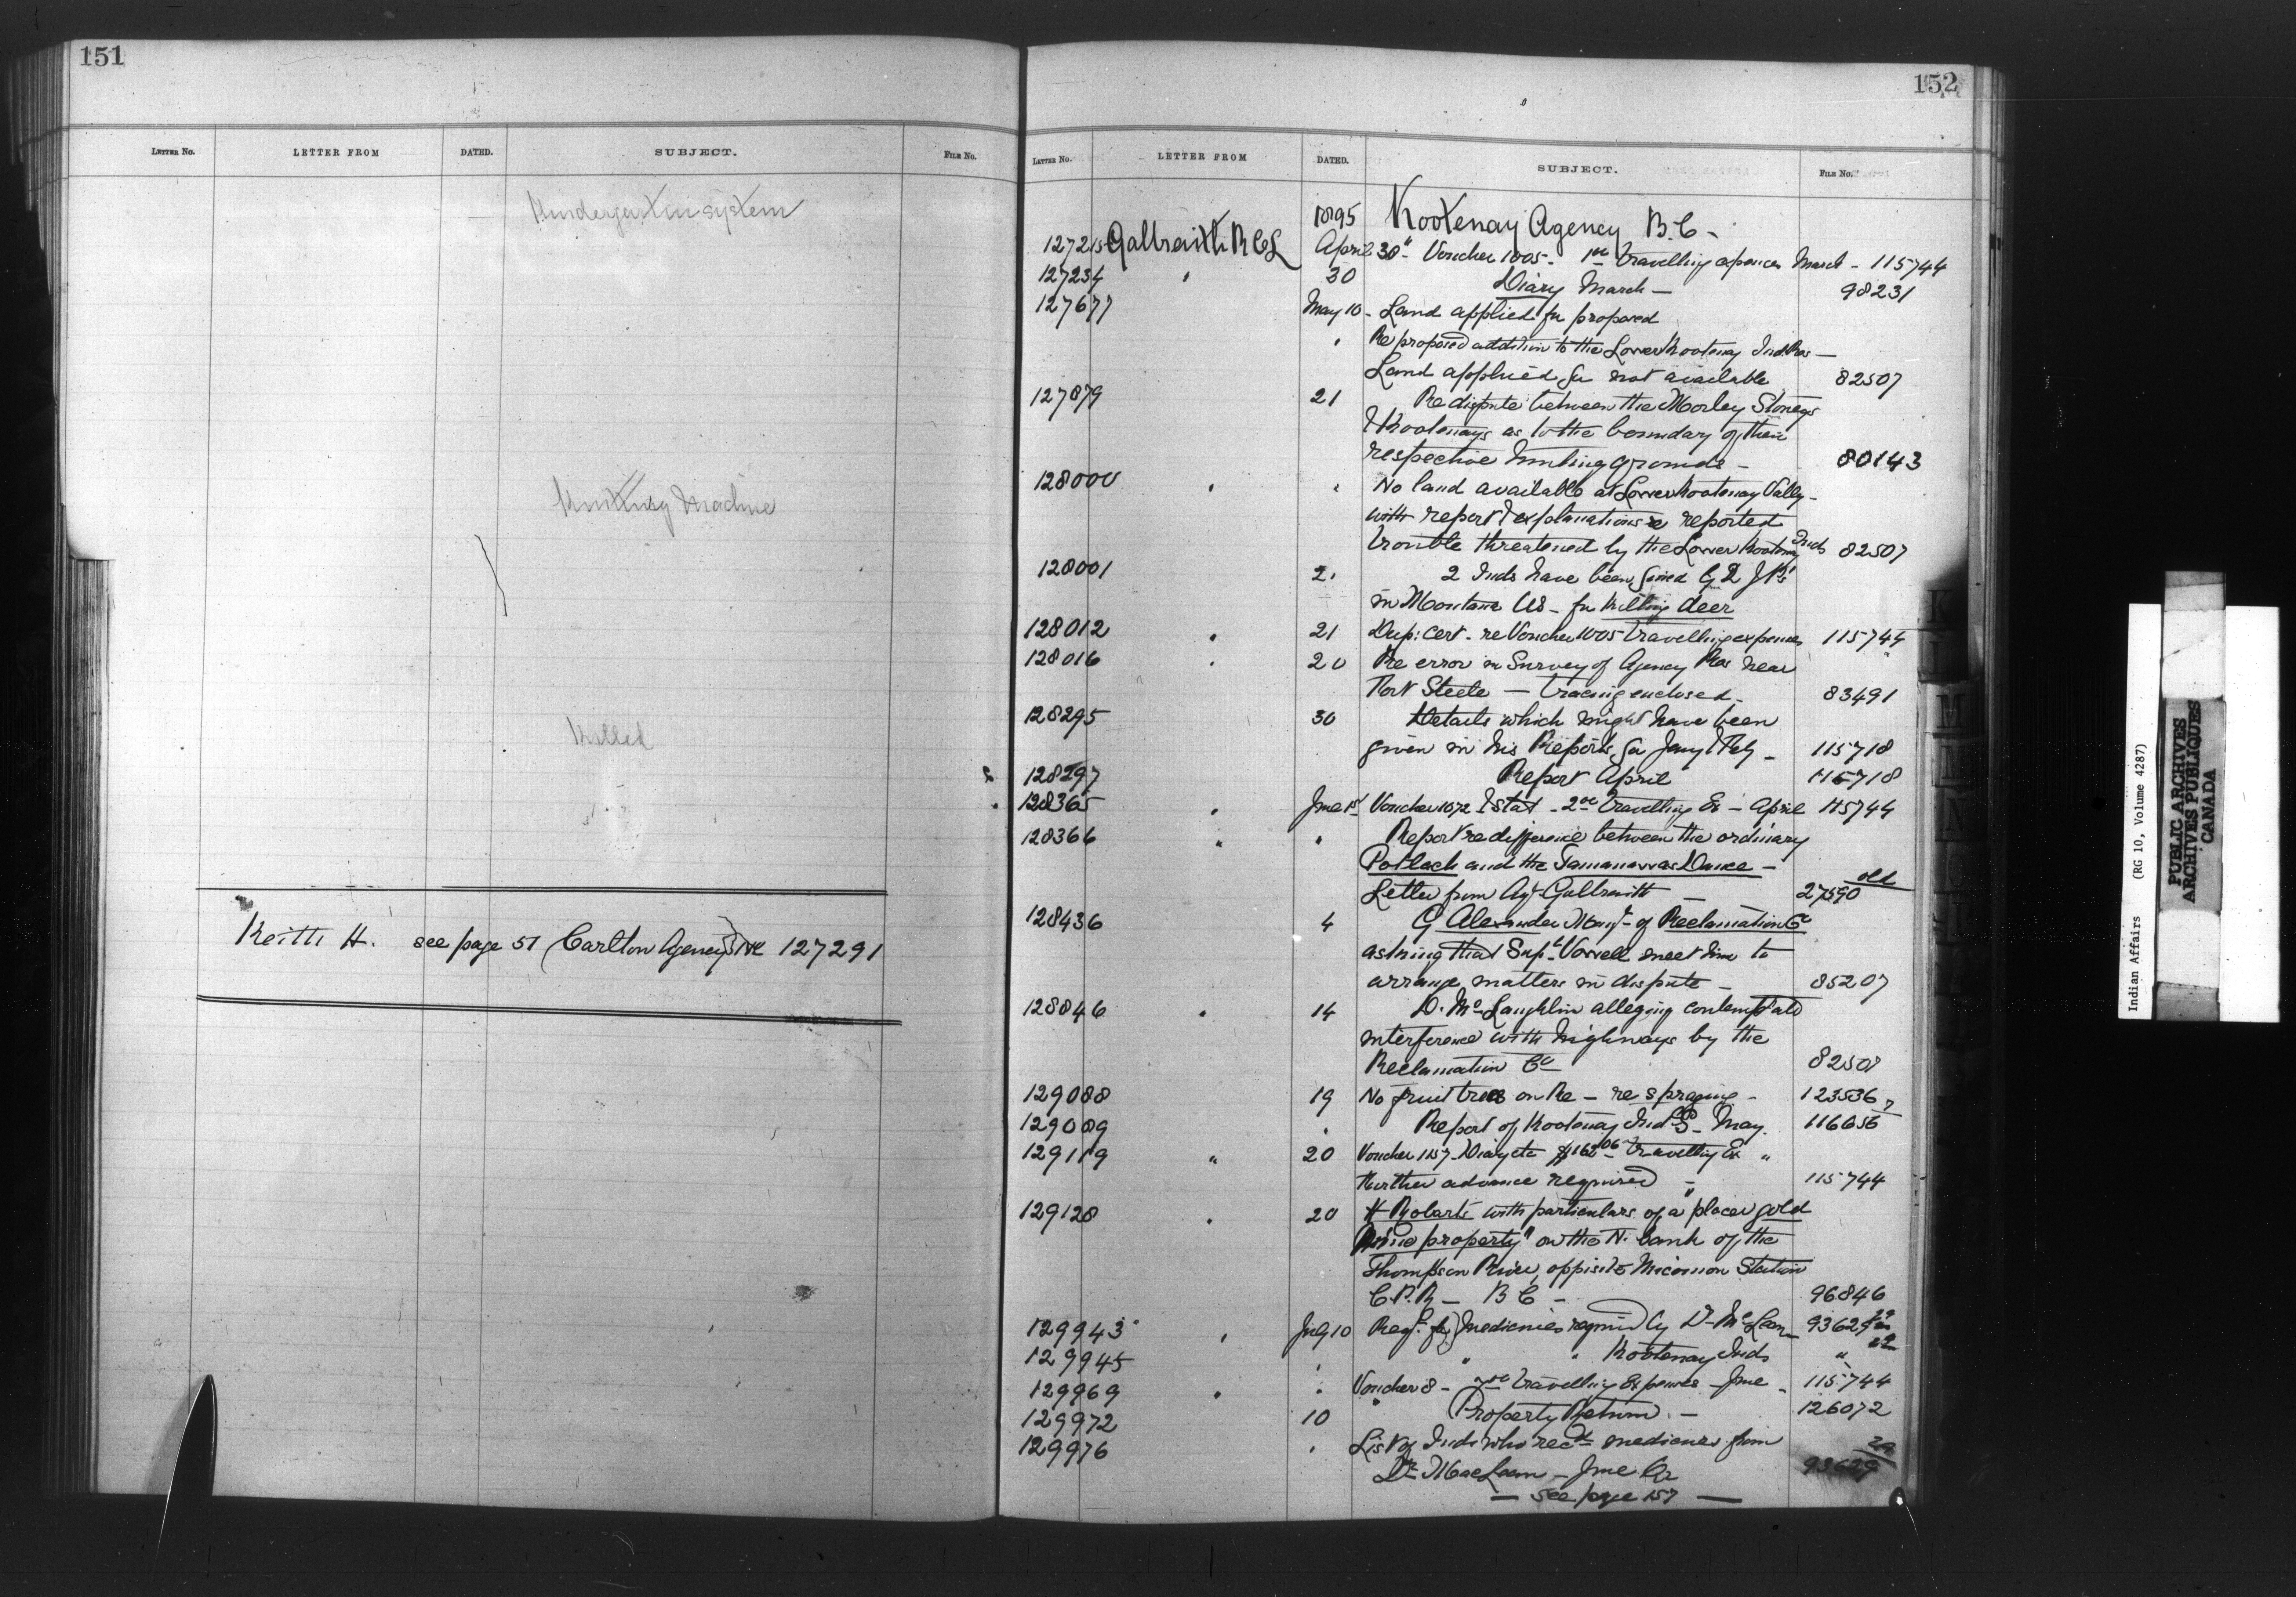 151
LETTER No. LETTER FROM DATED. SUBJECT. FILE No.
Kindergarten system
Knitting Machine
Killed
Keith H. see page 51 (Carlton Agency) 127291
152
LETTER No. LETTER FROM DATED. SUBJECT. FILE No.
1895 Kootenay Agency B.C.
127215 Galbraith R.C.L. April 30th Voucher 1005 - travelling expences March - 115744
127234 " 30 Diary March — 98231
127677 May 10 - Land applied for proposed
" Re proposed addition to the Lower Kootenay Ind. Res —
Land applied for not available 82507
127879 21 Re dispute between the Morley Stoneys
& Kootenays as to the boundary of their
respective hunting grounds - 80143
128000 " " No land available at Lower Kootenay Valley -
with report & explanations re reported
trouble threatened by the Lower Kootenay Inds 82507
128001 21 2 Inds have been fined by 2 J.P's
in Montana US - for killing deer
128012 " 21 Dup: cert. re Voucher 1005 travelling expences 115744
128016 " 20 Re error in Survey of Agency Res near
Fort Steele — tracing enclosed - 83491
128295 30 Details which might have been
given in his Reports for Jany & Feby - 115718
128297 Report April 115718
128365 " June 1st Voucher 1072 & Stat - travelling Ex - April 115744
128366 " " Report re difference between the ordinary
Potlach and the Tamanawas Dance -
Letter from Agt Galbraith — 27590 old
128436 4 G Alexander Mangr of Reclamation Co
asking that Supt Vowell meet him to
arrange matters in dispute - 85207
128846 " 14 D. McLaughlin alleging contemplated
interference with highways by the
Reclamation Co 82507
129088 19 No fruit trees on Re - re spraying - 123536
129089 " Report of Kootenay Ind S - May. 116656
129119 " 20 Voucher 1157 - Diary etc travelling Ex "
Further advance required - 115744
129128 " 20 H Robarts with particulars of a "placer gold
mine property" on the N. bank of the
Thompson River, opposite Station
C.P.R - B C - 96846
129943 " July 10 Reqn for medicines required by Dr McLean - 93629
129945 " " " Kootenay Inds "
129969 " " Voucher 8 - travelling Expences - June - 115744
129972 10 Property Return - 126072
129976 " List of Inds who recd medicines from
Dr MacLean - June Qr 93629
— see page 157 —
Indian Affairs (RG 10, Volume 4287)
PUBLIC ARCHIVES
ARCHIVES PUBLIQUES
CANADA